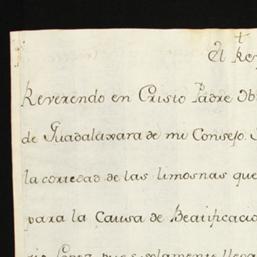 El Rey
Reverendo en Cristo Padre Ob
de Guadalaxara de mi Consejo.
la cortedad de las limosnas que
para la Causa de Beatificacio